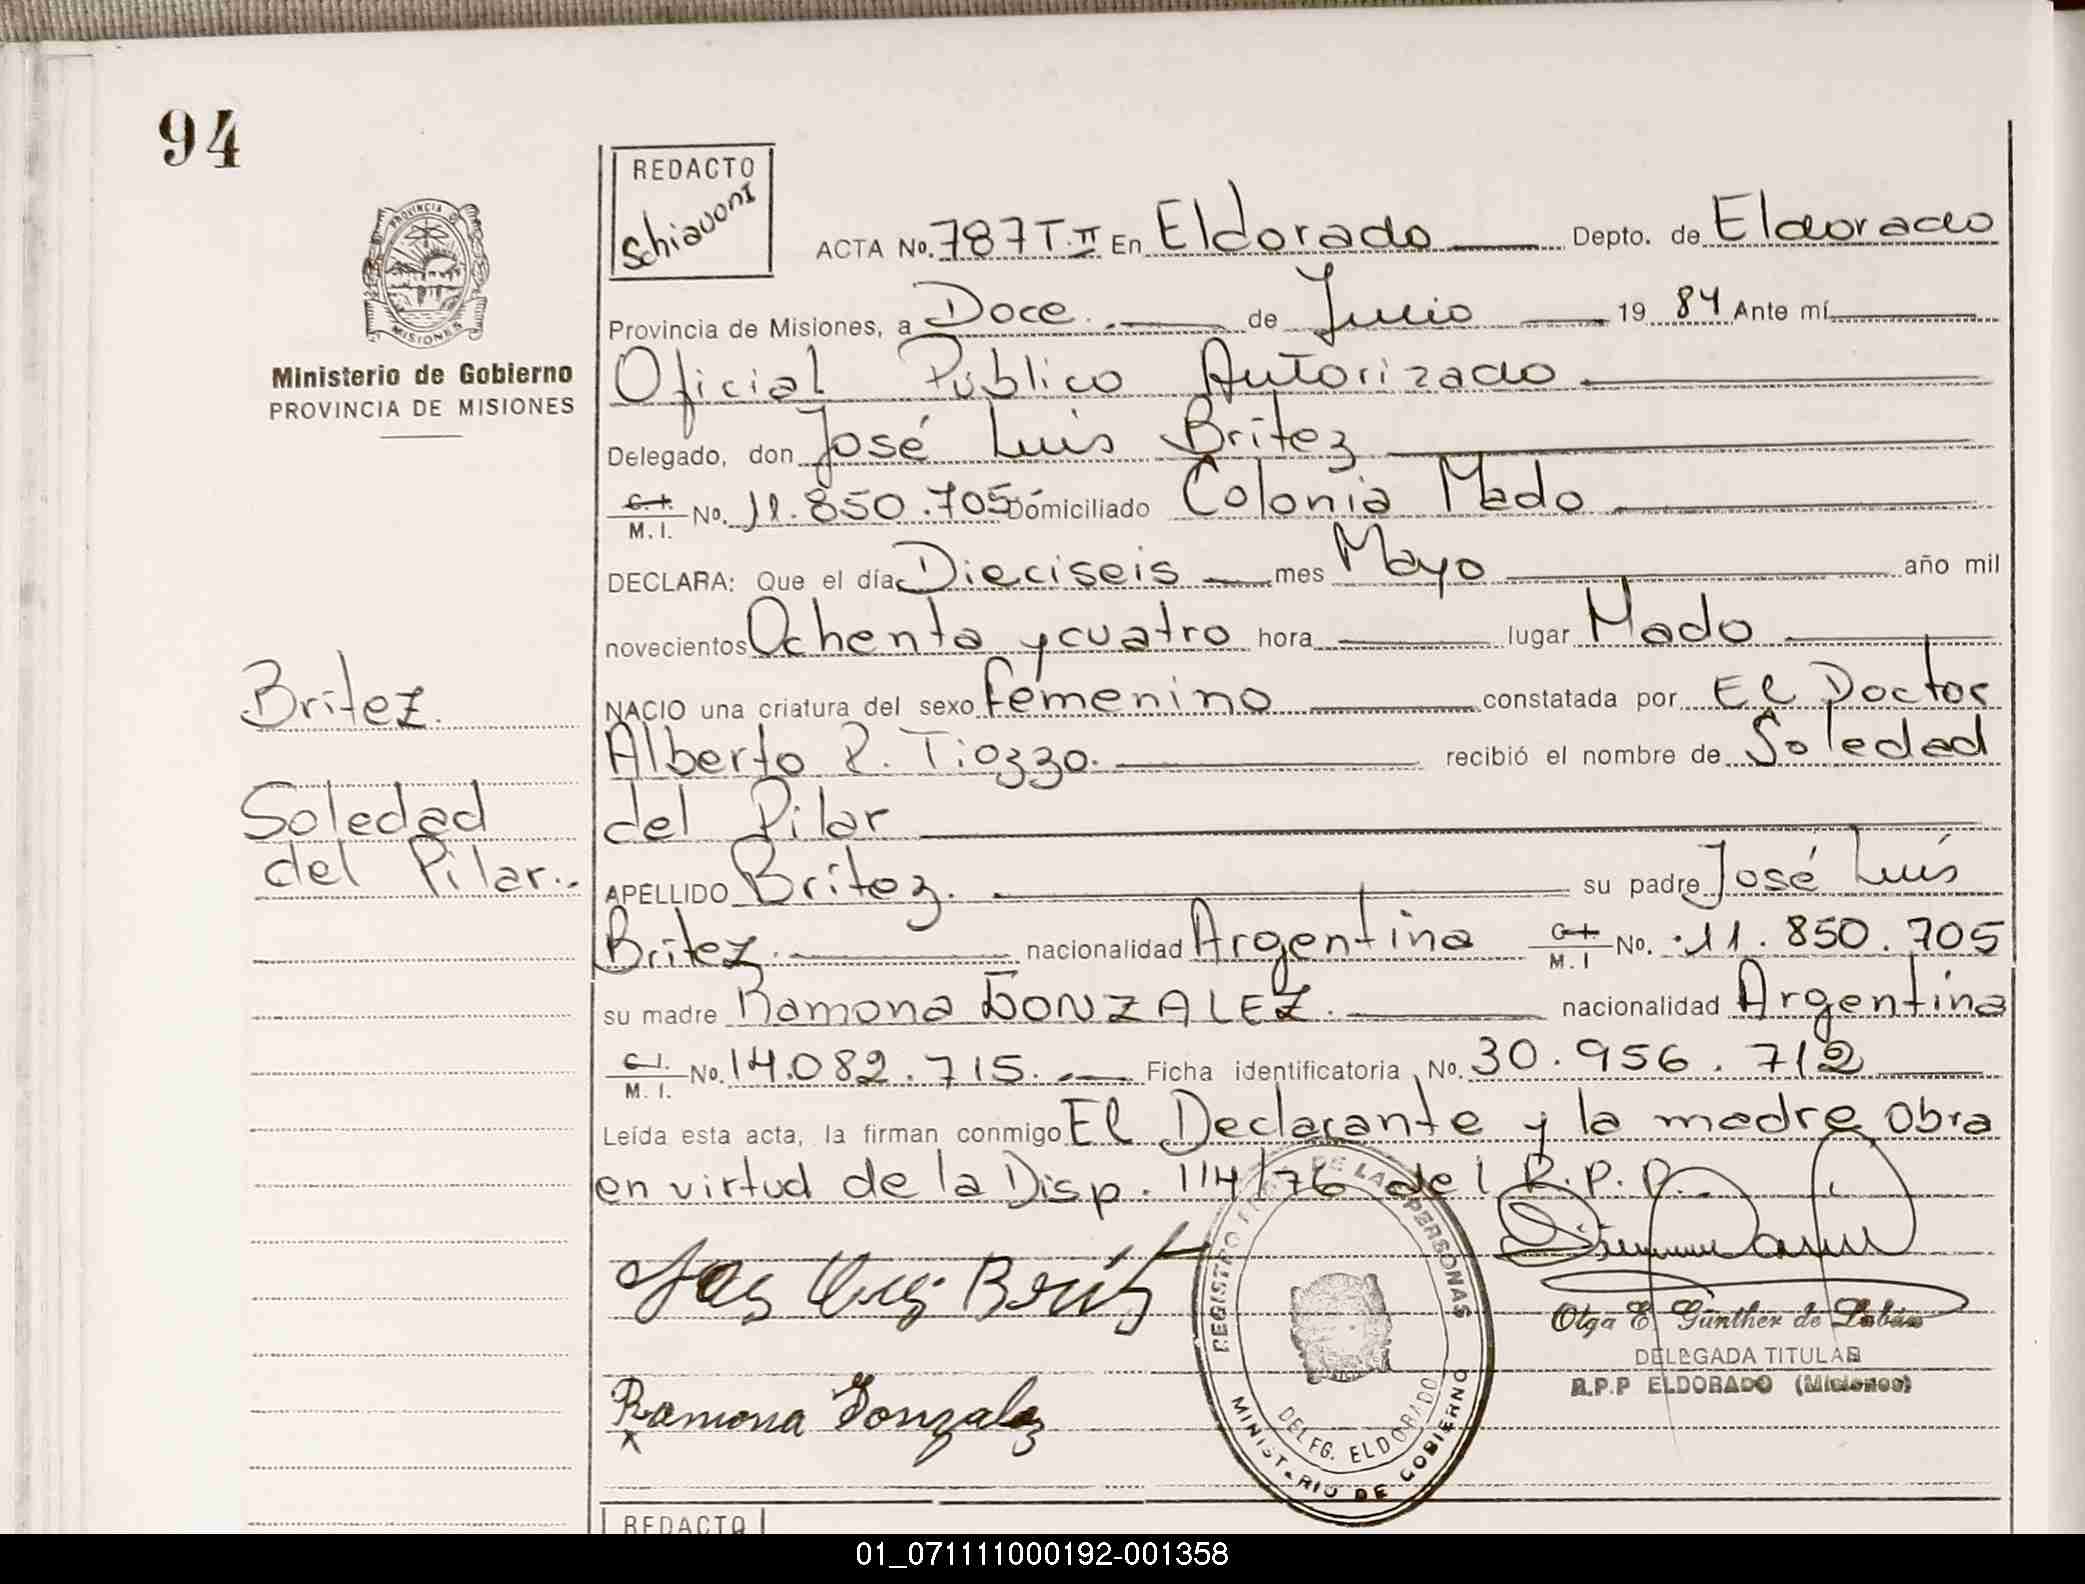 94
REDACTO
Schiavoni
PROVINCIA D
MISIONES
Ministerio de Gobierno
PROVINCIA DE MISIONES
ACTA No. 787 T. II En Eldorado Depto. de Eldorado
Provincia de Misiones, a Doce. de Junio 19 84 Ante mí
Oficial Público Autorizado
Delegado, don José Luis Britez
C.I. M.I. No. 11.850.705 Domiciliado Colonia Mado
DECLARA: Que el día Dieciseis mes Mayo año mil
novecientos Ochenta y cuatro hora lugar Mado
NACIO una criatura del sexo femenino constatada por El Doctor
Alberto R. Tiozzo. recibió el nombre de Soledad
del Pilar
APELLIDO Britez. su padre José Luís
Britez. nacionalidad Argentina C.I. M.I No. 11.850.705
su madre Ramona GONZALEZ. nacionalidad Argentina
C.I. M.I. No. 14.082.715. Ficha identificatoria No. 30.956.712
Leída esta acta, la firman conmigo El Declarante y la madre obra
en virtud de la Disp. 114/76 del R.P.P.
Britez.
Soledad
del Pilar..
Jose Luis Britez
Ramona Gonzalez
x
REGISTRO DE LAS PERSONAS
MINISTERIO DE GOBIERNO
DELEG. ELDORADO
Olga E. Günther de
DELEGADA TITULAR
R.P.P ELDORADO (Misiones)
REDACTO
01_071111000192-001358